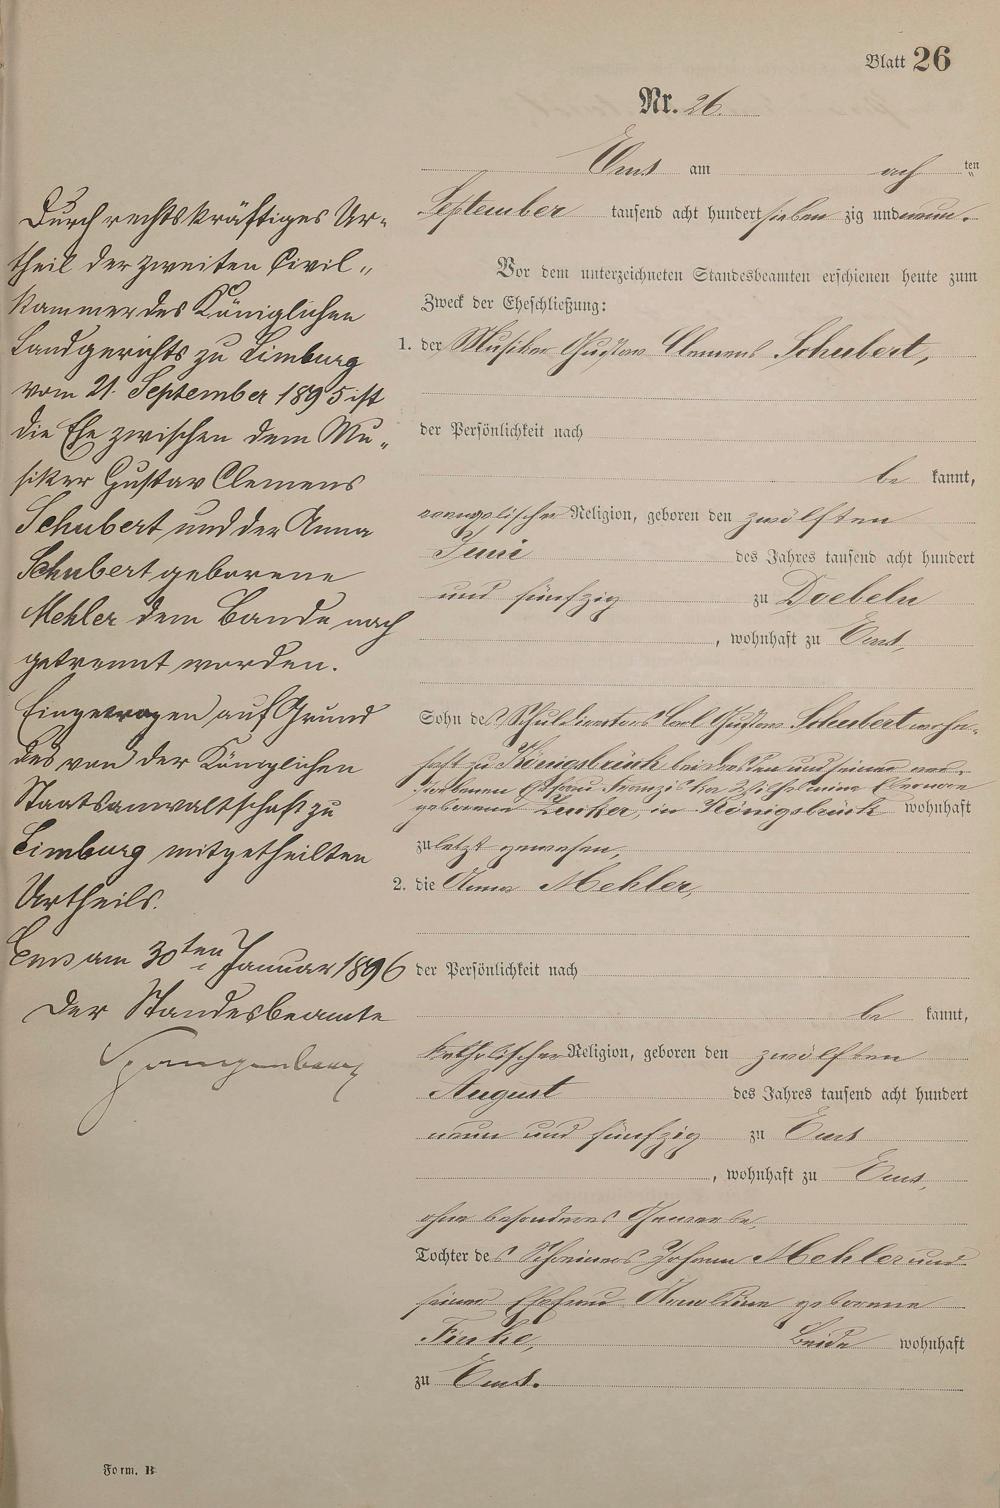 Blatt 26
Nr. 26.
Ems am acht ten
September tausend acht hundert sieben zig und neun.
Durch rechtskräftiges Ur-
theil der zweiten Civil-
kammer des Königlichen
Landgerichts zu Limburg
vom 21. September 1895 ist
die Ehe zwischen dem Mu-
siker Gustav Clemens
Schubert und der Anna
Schubert geborene
Mehler dem Bande nach
getrennt worden.
Eingetragen auf Grund
des von der Königlichen
Staatsanwaltschaft zu
Limburg mitgetheilten
Urtheils.
Ems am 30ten Januar 1896
Der Standesbeamte
Spangenberg
Vor dem unterzeichneten Standesbeamten erschienen heute zum
Zweck der Eheschließung:
1. der Musiker Gustav Clemens Schubert,
der Persönlichkeit nach
be kannt,
evangelischer Religion, geboren den zwölften
Juni des Jahres tausend acht hundert
und fünfzig zu Doebeln
, wohnhaft zu Ems,
Sohn des Schuldirectors Carl Gustav Schubert wohn-
haft zu Königsbrück bei Dresden und seiner ver-
storbenen Ehefrau Franziska Wilhelmine
geborene Zenker, in Königsbrück wohnhaft
zuletzt gewesen,
2. die Anna Mehler,
der Persönlichkeit nach
be kannt,
katholischer Religion, geboren den zwölften
August des Jahres tausend acht hundert
neun und fünfzig zu Ems
, wohnhaft zu Ems,
ohne besonderes Gewerbe,
Tochter des Schreiners Johann Mehler und
seiner Ehefrau Karoline geborene
Finke, Beide wohnhaft
zu Ems.
Form. B